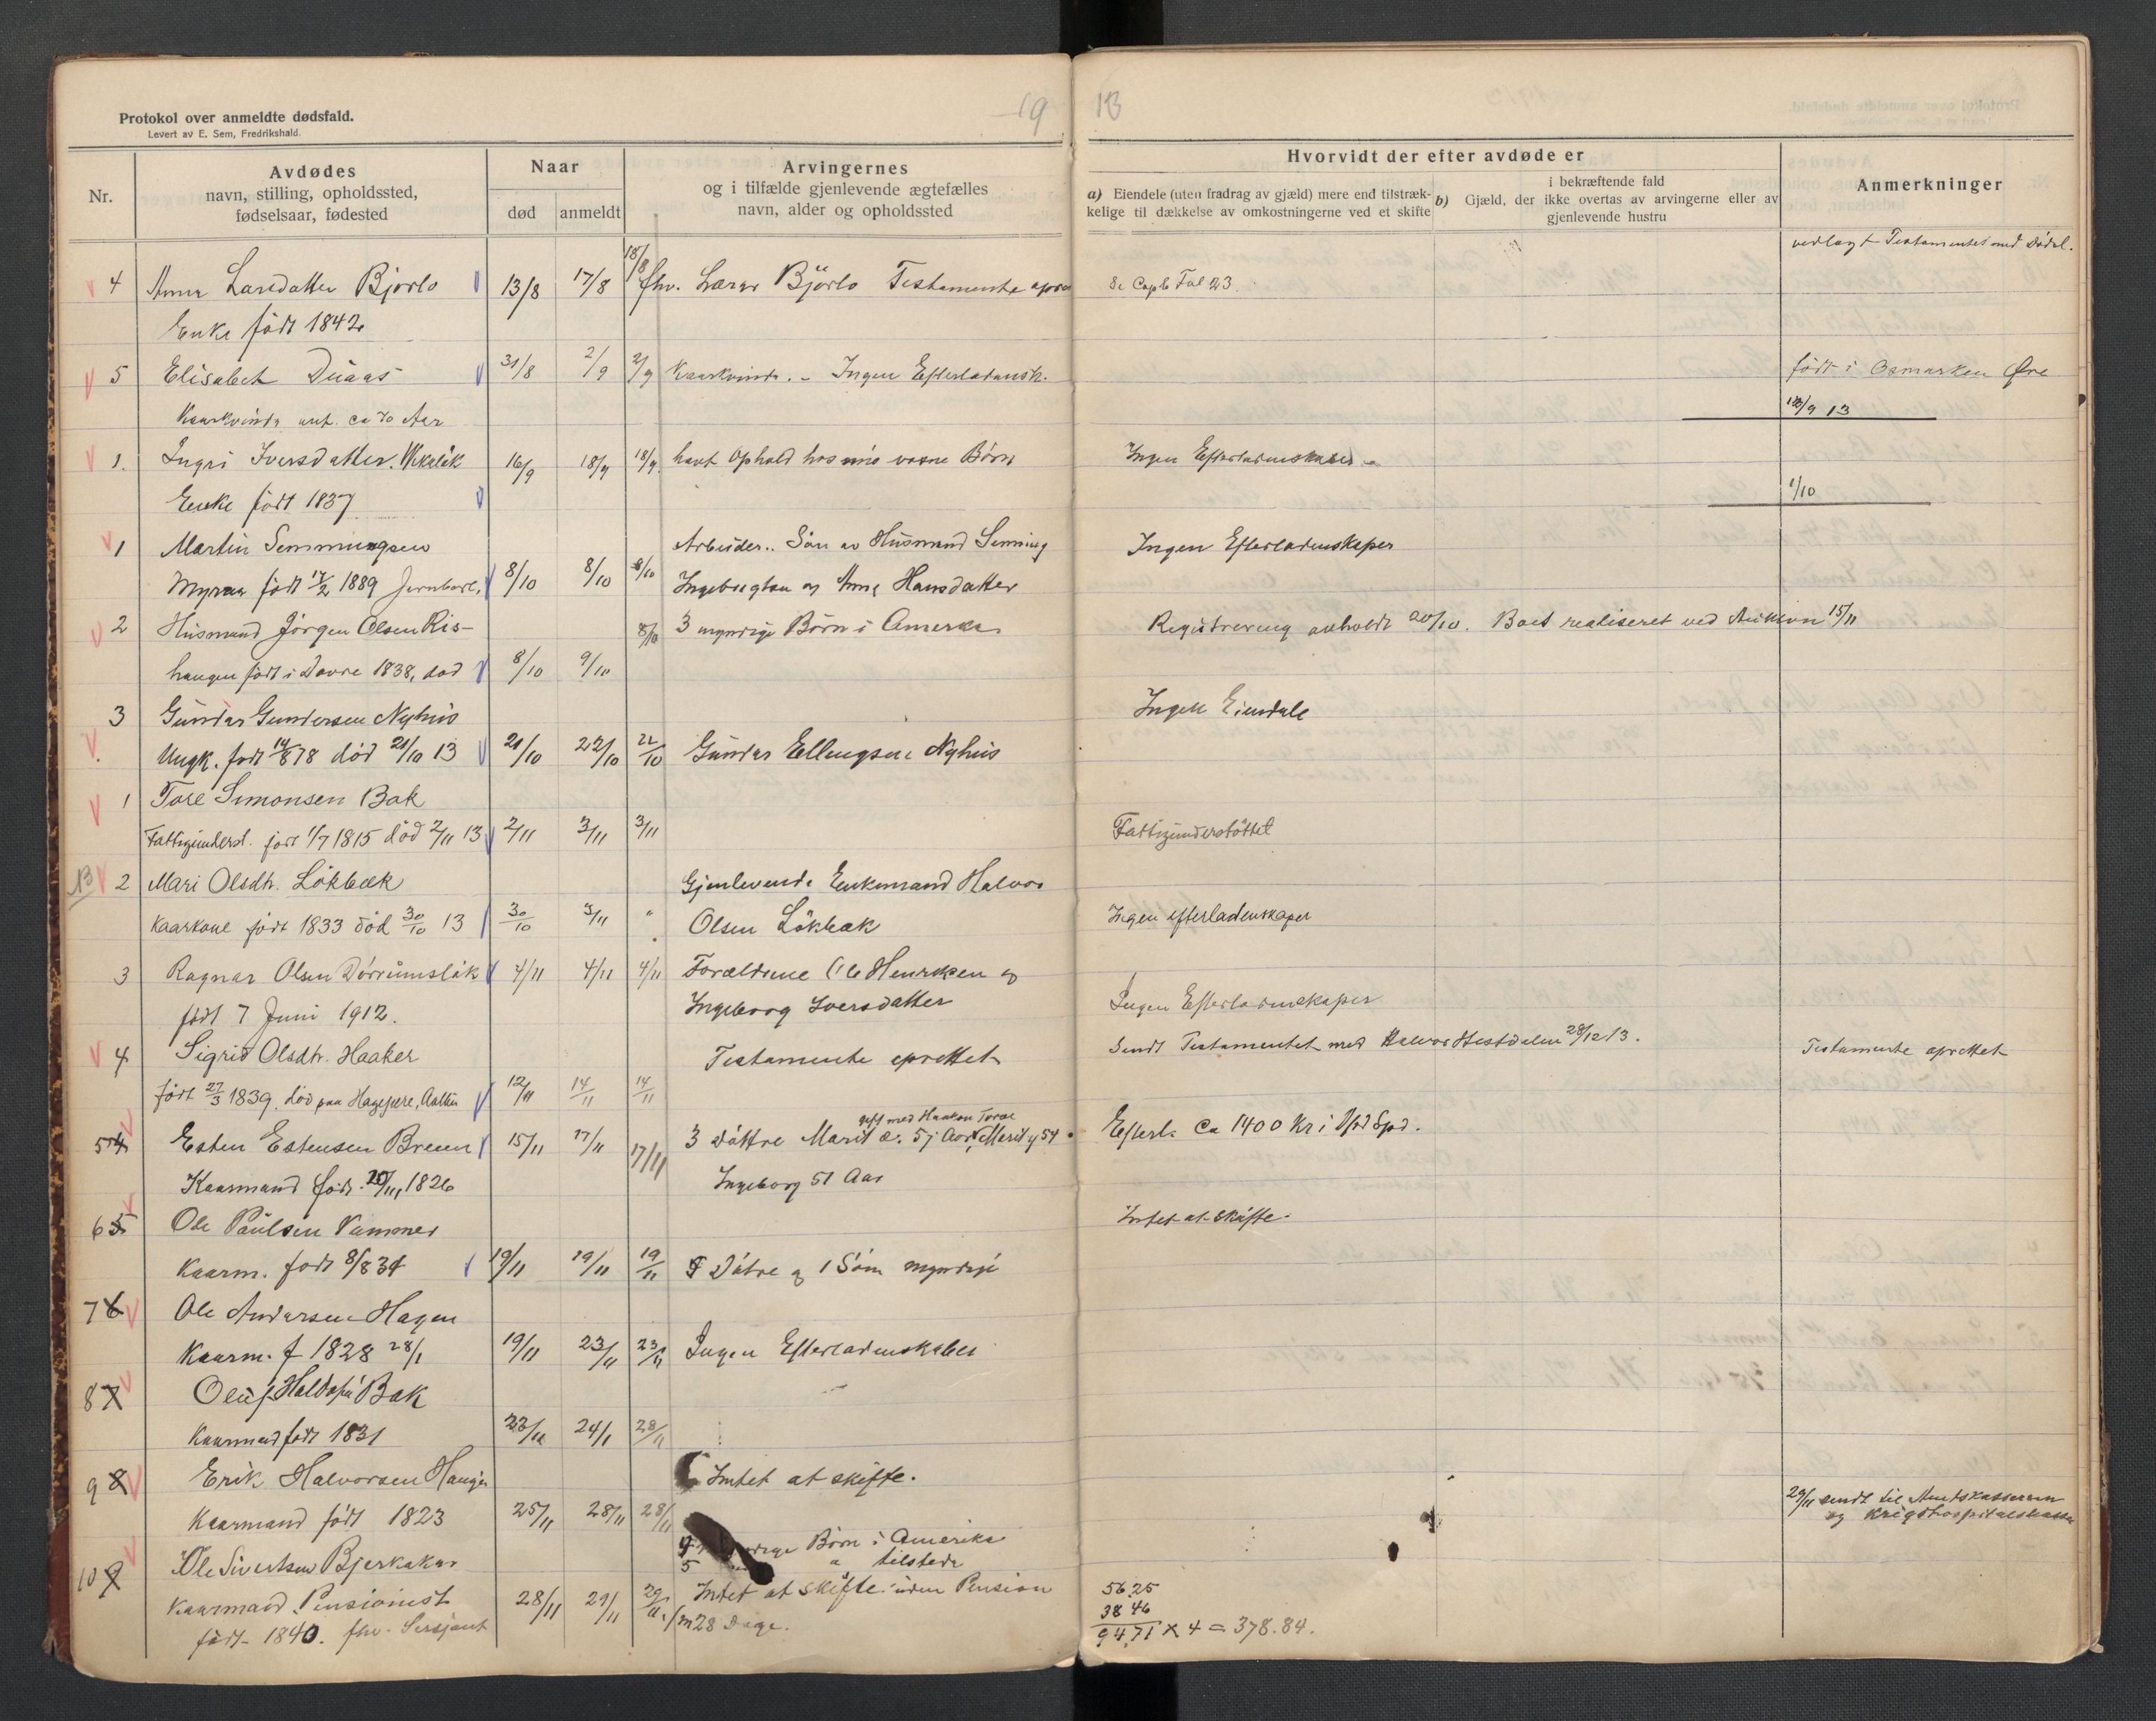 Protokol over anmeldte dødsfald.
Levert av E. Sem, Fredrikshald.
19
13
Nr.
Avdødes
navn, stilling, opholdssted,
fødselsaar, fødested
Naar
død
anmeldt
Arvingernes
og i tilfælde gjenlevende ægtefælles
navn, alder og opholdssted
Hvorvidt der efter avdøde er
a) Eiendele (uten fradrag av gjæld) mere end tilstræk-
kelige til dækkelse av omkostningerne ved et skifte
i bekræftende fald
b) Gjæld, der ikke overtas av arvingerne eller av
gjenlevende hustru
Anmerkninger
vedlagt Testamentet med
4 Anne Larsdatter Bjørlo 13/8 17/8 18/8 fhv. Lærer Bjørlo Testamente
Se Fol 23
Enke født 1842
5 Elisabet 31/8 2/9 2/9 Kaarkvinde. - Ingen Efterladensk.
født i Osmarken Øre
Kaarkvinde ca 70 Aar
13/9 13
1. Ingri Iversdatter 16/9 18/9 18/9 havt Ophold hos voxne Børn
Ingen Efterladenskaber
Enke født 1837
1/10
1 Martin Semmingsen
Arbeider.. Søn av Husmand Semming
Ingen Efterladenskaper
Myren født 17/2 1889 8/10 8/10 8/10 Ingebregtsen og Anne Hansdatter
2 Husmand Jørgen Olsen Ris-
8/10 3 myndige Børn i Amerka
Registrering avholdt 20/10. Boet realiseret ved Auktion 15/11
haugen født i Dovre 1838, død 8/10 9/10
3 Gundar Gundersen Nyhus
Ingen Eiendele
Ungk. født 14/8 78 død 21/10 13 21/10 22/10 22/10 Gundar Ellingsen Nyhus
1 Tore Simonsen Bak
Fattigunderst. født 1/7 1815 død 2/11 13 2/11 3/11 3/11
Fattigunderstøttet
13 2 Mari Olsdtr. Løkbæk
Gjenlevende Enkemand Halvor
Kaarkone født 1833 død 30/10 13 30/10 3/11 " Olsen Løkbæk
Ingen efterladenskaper
3 Ragnar Olsen Dørrumslåk 4/11 4/11 4/11 Forældrene Ole Henriksen og
født 7 Juni 1912.
Ingeborg Iversdatter
Ingen Efterladenskaper
4 Sigrid Olsdtr. Haaker
Testamente oprettet
Sendt Testamentet med Halvor Hestdalen 28/12 13.
Testamente oprettet
født 27/3 1839. død paa 12/11 14/11 14/11
gift med Haakon
5 4 Esten Estensen Breen 15/11 17/11 17/11 3 Døttre Marit æ. 57 Aar, Marit y 54
Efterl. ca 1400 Kr i
Kaarmand født 20/11, 1826
Ingeborg 51 Aar
6 5 Ole Paulsen
Intet at skifte.
Kaarm. født 8/8 34 19/11 19/11 19/11 Døtre og 1 Søn myndige
7 6 Ole Andersen Hagen
Kaarm. f 1828 28/1 19/11 23/11 23/11 Ingen Efterladenskaber
8 7 Bak
Kaarmand født 1831 23/11 24/1 28/11
9 8 Erik Halvorsen Haugen
Intet at skifte.
Kaarmand født 1823 25/11 28/11 28/11
29/11 sendt til Amtskassereren
og Krigshospitalskassen
10 9 Ole Sivertsen Bjerkaker
Børn i Amerika
5 " tilstede
Kaarmand. Pensionist 28/11 29/11 29/11. Intet at skifte uden Pension
født 1840. fhv. Sersjant
28 Dage.
56.25
38 46
94,71 x 4 = 378.84.